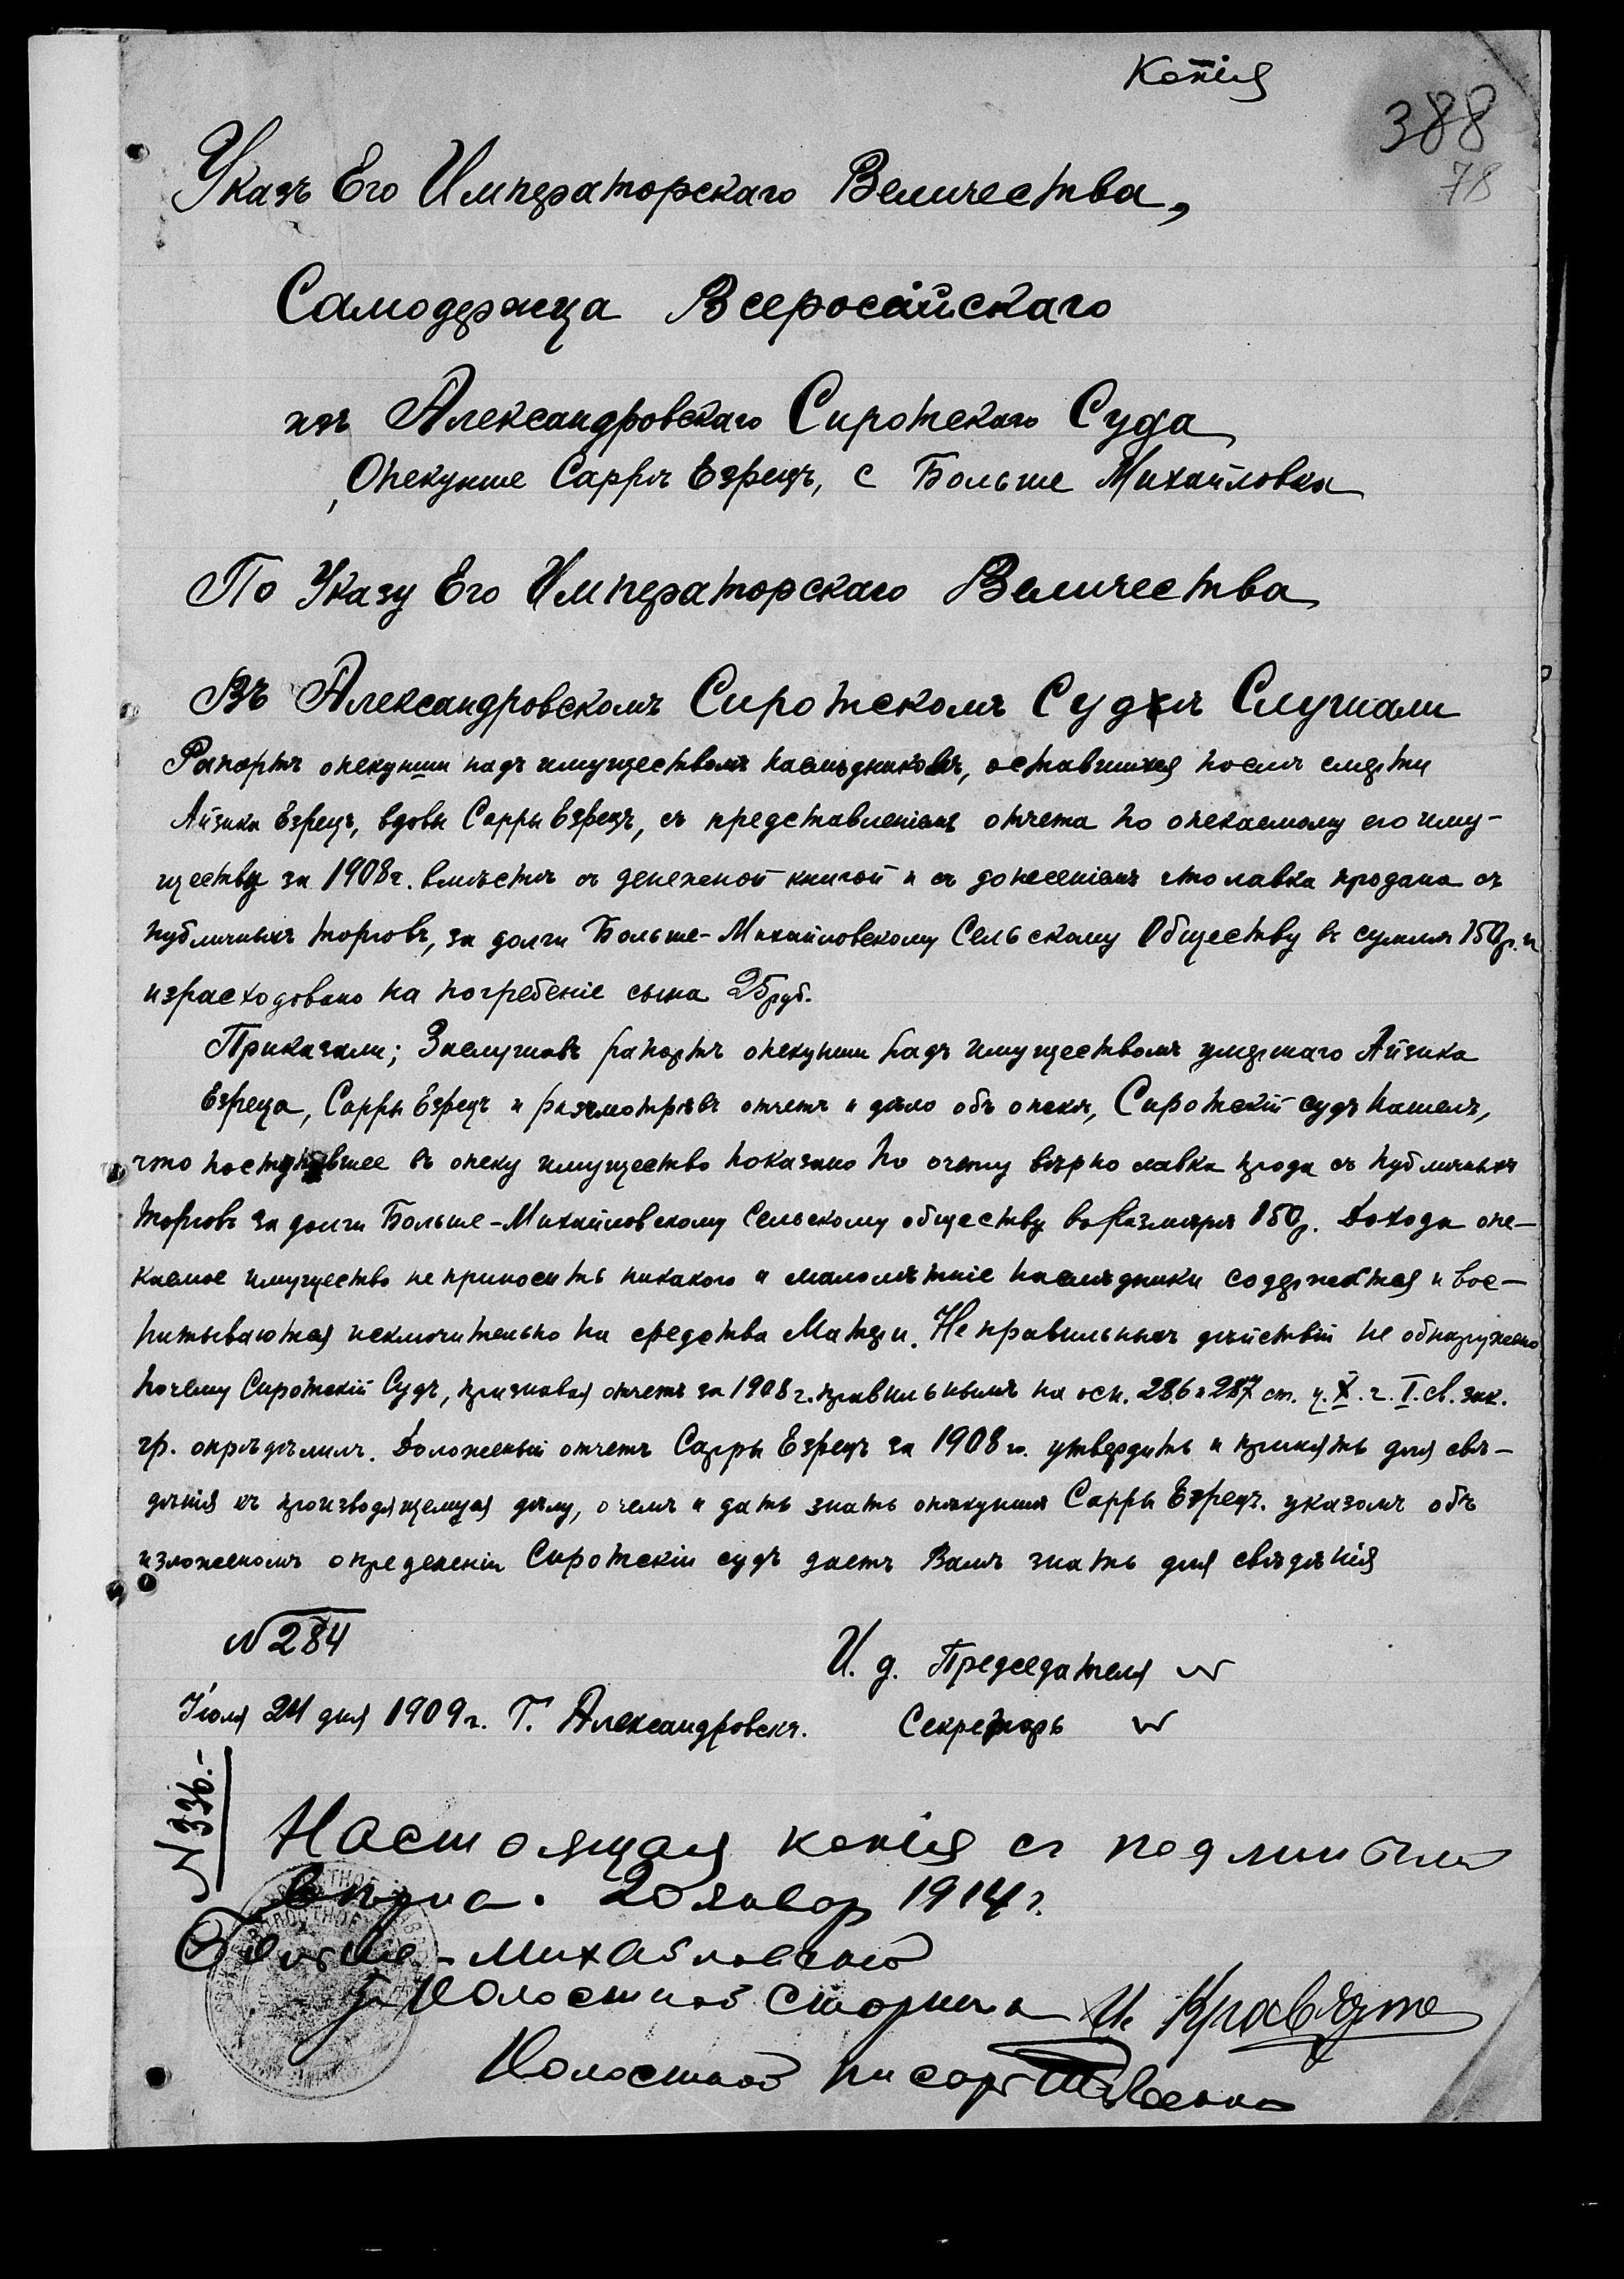 Копія
388
78
Указъ Его Императорскаго Величества,
Самодержца Всеросійскаго
изъ Александровскаго Сиротскаго Суда
Опекунше Саррѣ Езрецъ, с Больше Михайловка
По Указу Его Императорскаго Величества
Въ Александровскомъ Сиротскомъ Судѣ Слушали
Рапортъ опекунши надъ имуществомъ наслѣдниковъ, оставшихся послѣ смерти
Айзика Езрецъ, вдовы Сарры Езрецъ, съ представленіемъ отчета по опекаемому его иму-
ществу за 1908 г. вмѣстѣ съ денежной книгой и съ донесеніемъ что лавка продана съ
публичныхъ торговъ, за долги Больше-Михайловскому Сельскому Обществу въ суммѣ 150 р. и
израсходовано на погребеніе сына 25 руб.
Приказали; Заслушавъ рапортъ опекунши надъ имуществомъ умершаго Айзика
Езреца, Сарры Езрецъ и разсмотрѣвъ отчетъ и дѣло объ опекѣ, Сиротскій судъ нашелъ,
что поступившее въ опеку имущество показано по очету вѣрно лавка прода съ публичныхъ
торговъ за долги Больше-Михайловскому Сельскому обществу в размѣрѣ 150 р. Дохода опе-
каемое имущество не приноситъ никакого и малолѣтніе наслѣдники содержатся и вос-
питываются исключительно на средства Матери. Неправильныхъ дѣйствій не обнаружено
почему Сиротскій Судъ, признавая отчетъ за 1908 г. правильнымъ на осн. 286 и 287 ст. т. X. ч. I. св. зак.
гр. опрѣдѣлилъ. Доложеный отчетъ Сарры Езрецъ за 1908 го. утвердить и принять для свѣ-
дѣнія къ производящемуся дѣлу, о чемъ и дать знать опѣкуншѣ Сарры Езрецъ. указомъ объ
изложеномъ определеніи Сиротскіи судъ даетъ Вамъ знать для свѣдѣнія
№ 284
И. д. Председателя
Іюля 24 дня 1909 г. Г. Александровскъ.
Секретарь
№ 336.-
Настоящая копія съ подлиннымъ
верна. 20 январ 1914 г.
Больше-Михайловской
Волостной Старшина И. Кравченко
Волостной писарь